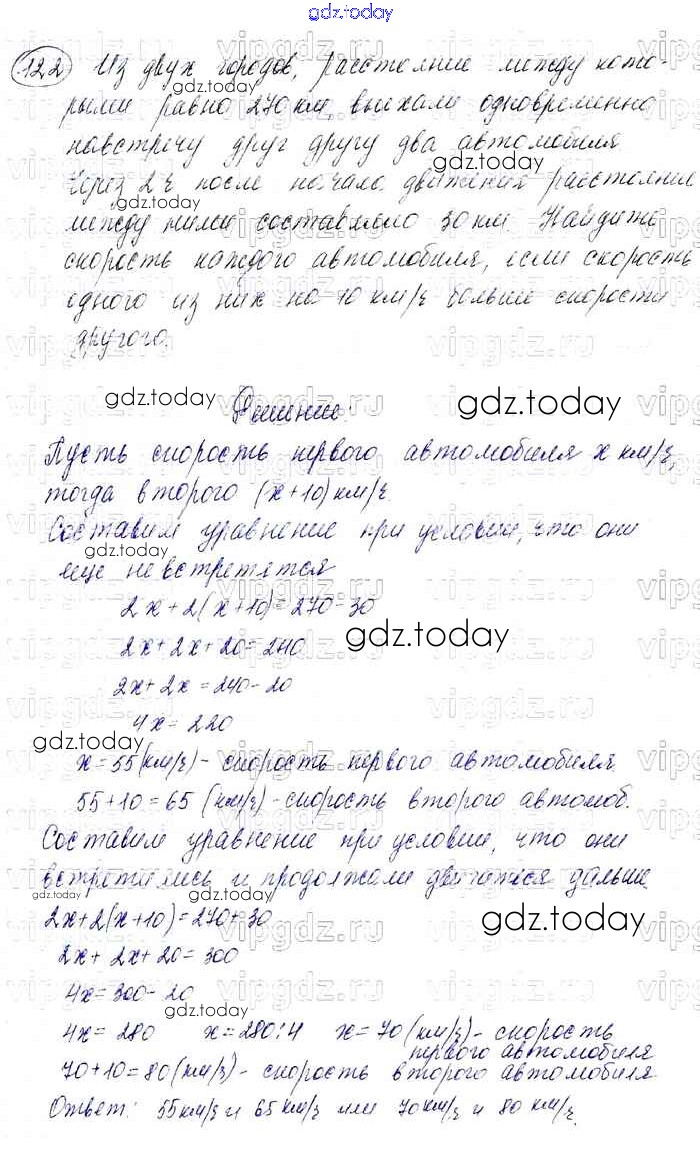 gdz.today
122 Из двух городов, расстояние между кото-
рыми равно 270 км, выехали одновременно
навстречу друг другу два автомобиля.
Через 2 ч после начала движения расстояние
между ними составляло 30 км. Найдите
скорость каждого автомобиля, если скорость
одного из них на 10 км/ч больше скорости
другого.
Решение:
Пусть скорость первого автомобиля x км/ч,
тогда второго (x+10) км/ч.
Составим уравнение при условии, что они
еще не встретятся
2x+2(x+10)=270-30
2x+2x+20=240
2x+2x=240-20
4x=220
x=55(км/ч)- скорость первого автомобиля
55+10=65 (км/ч)-скорость второго автомоб.
Составим уравнение при условии, что они
встретились и продолжали двигаться дальше
2x+2(x+10)=270+30
2x+2x+20=300
4x=300-20
4x=280 x=280:4 x=70(км/ч)- скорость
первого автомобиля
70+10=80(км/ч)- скорость второго автомобиля
Ответ: 55км/ч и 65 км/ч или 70км/ч и 80 км/ч.